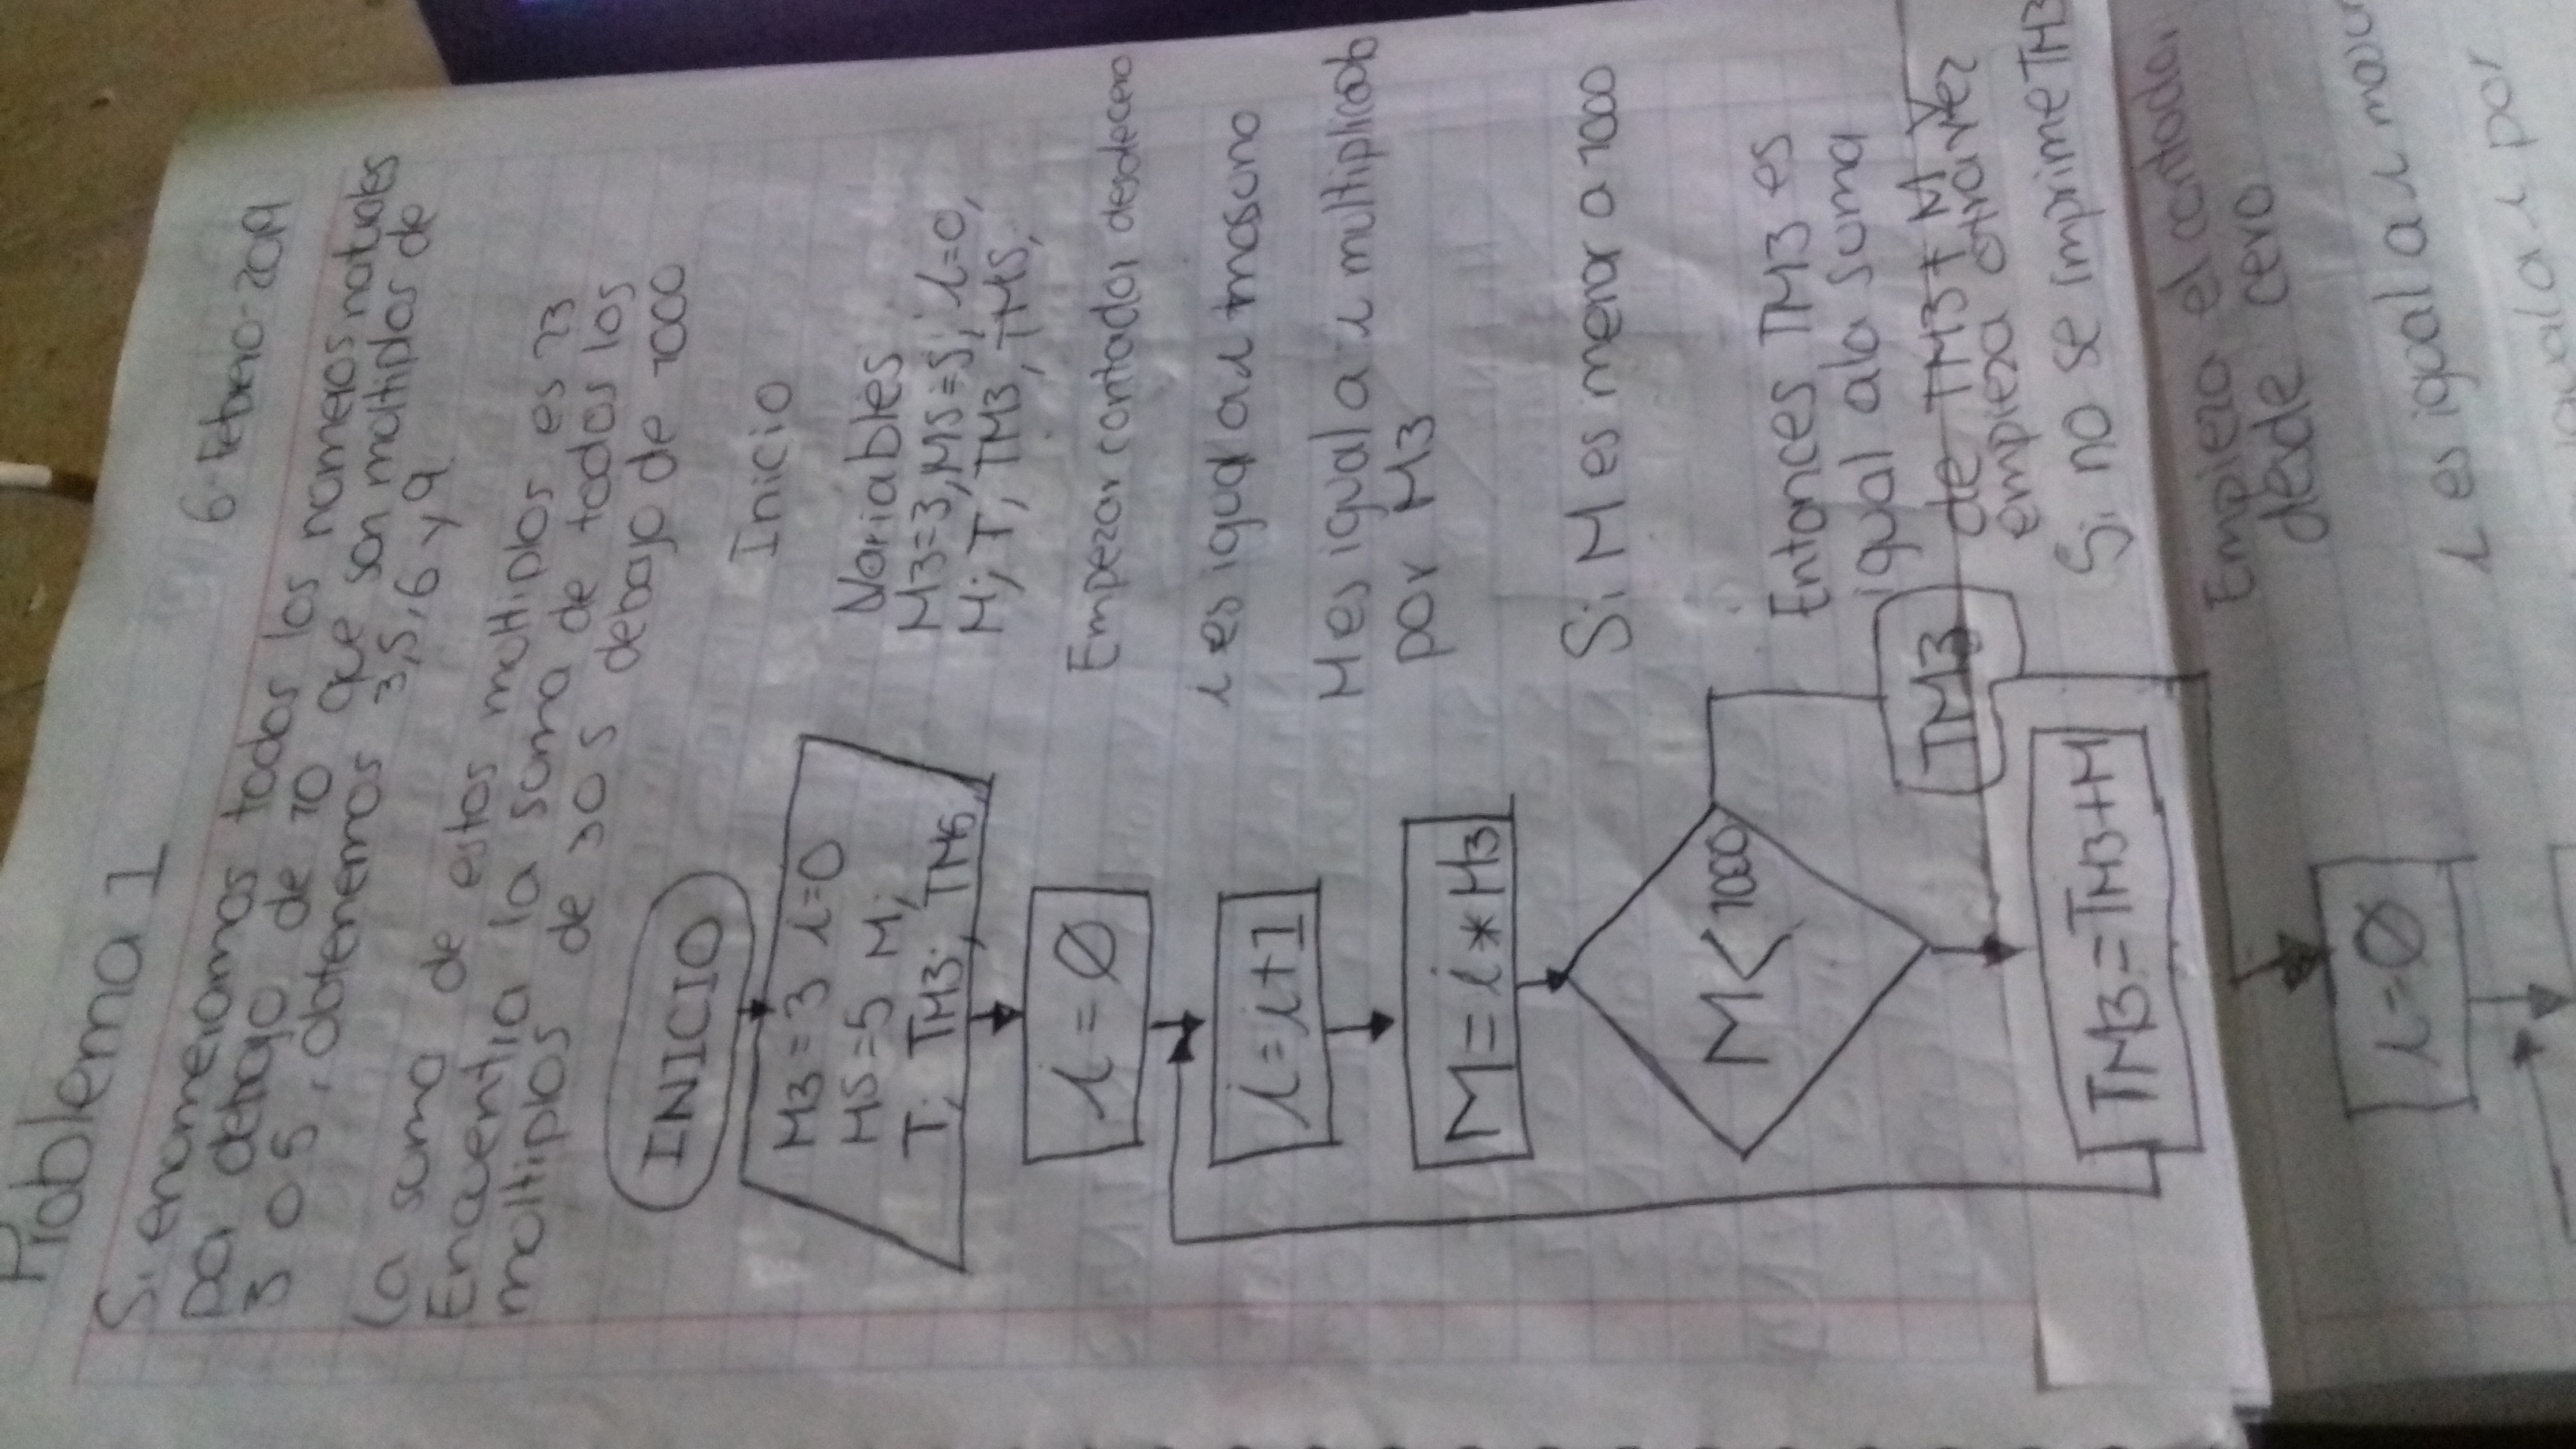 Problema 1
6-Febrero-2019
Si enumeramos todos los numeros naturales
por debajo de 10 que son multiplos de
3 o 5, obtenemos 3,5,6 y 9
La suma de estos multiplos es 23
Encuentra la suma de todos los
multiplos de 3 o 5 debajo de 1000
INICIO
Inicio
M3=3 i=0
M5=5 M;
T; TM3; TM5
Variables
M3=3, M5=5; i=0,
M; T, TM3, TM5,
i=Ø
Empezar contador desde cero
i=i+1
i es igual a i mas uno
M=i*M3
M es igual a i multiplicado
por M3
M<1000
Si M es menor a 1000
TM3
TM3=TM3+M
Entonces TM3 es
igual a la suma
de TM3+M y
empieza otra vez
Si no se imprime TM3
i=Ø
Empiezo el contador
desde cero
i es igual a i mas
igual a i por